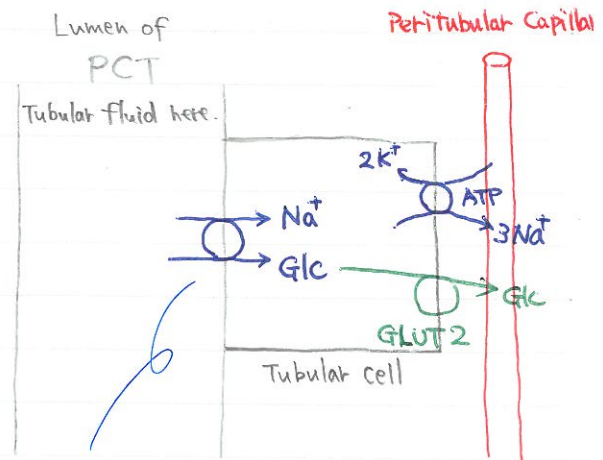 Lumen of
PCT
Peritubular Capillar
Tubular fluid here.
2K+
ATP
Na+
3Na+
Glc
Glc
GLUT 2
Tubular cell